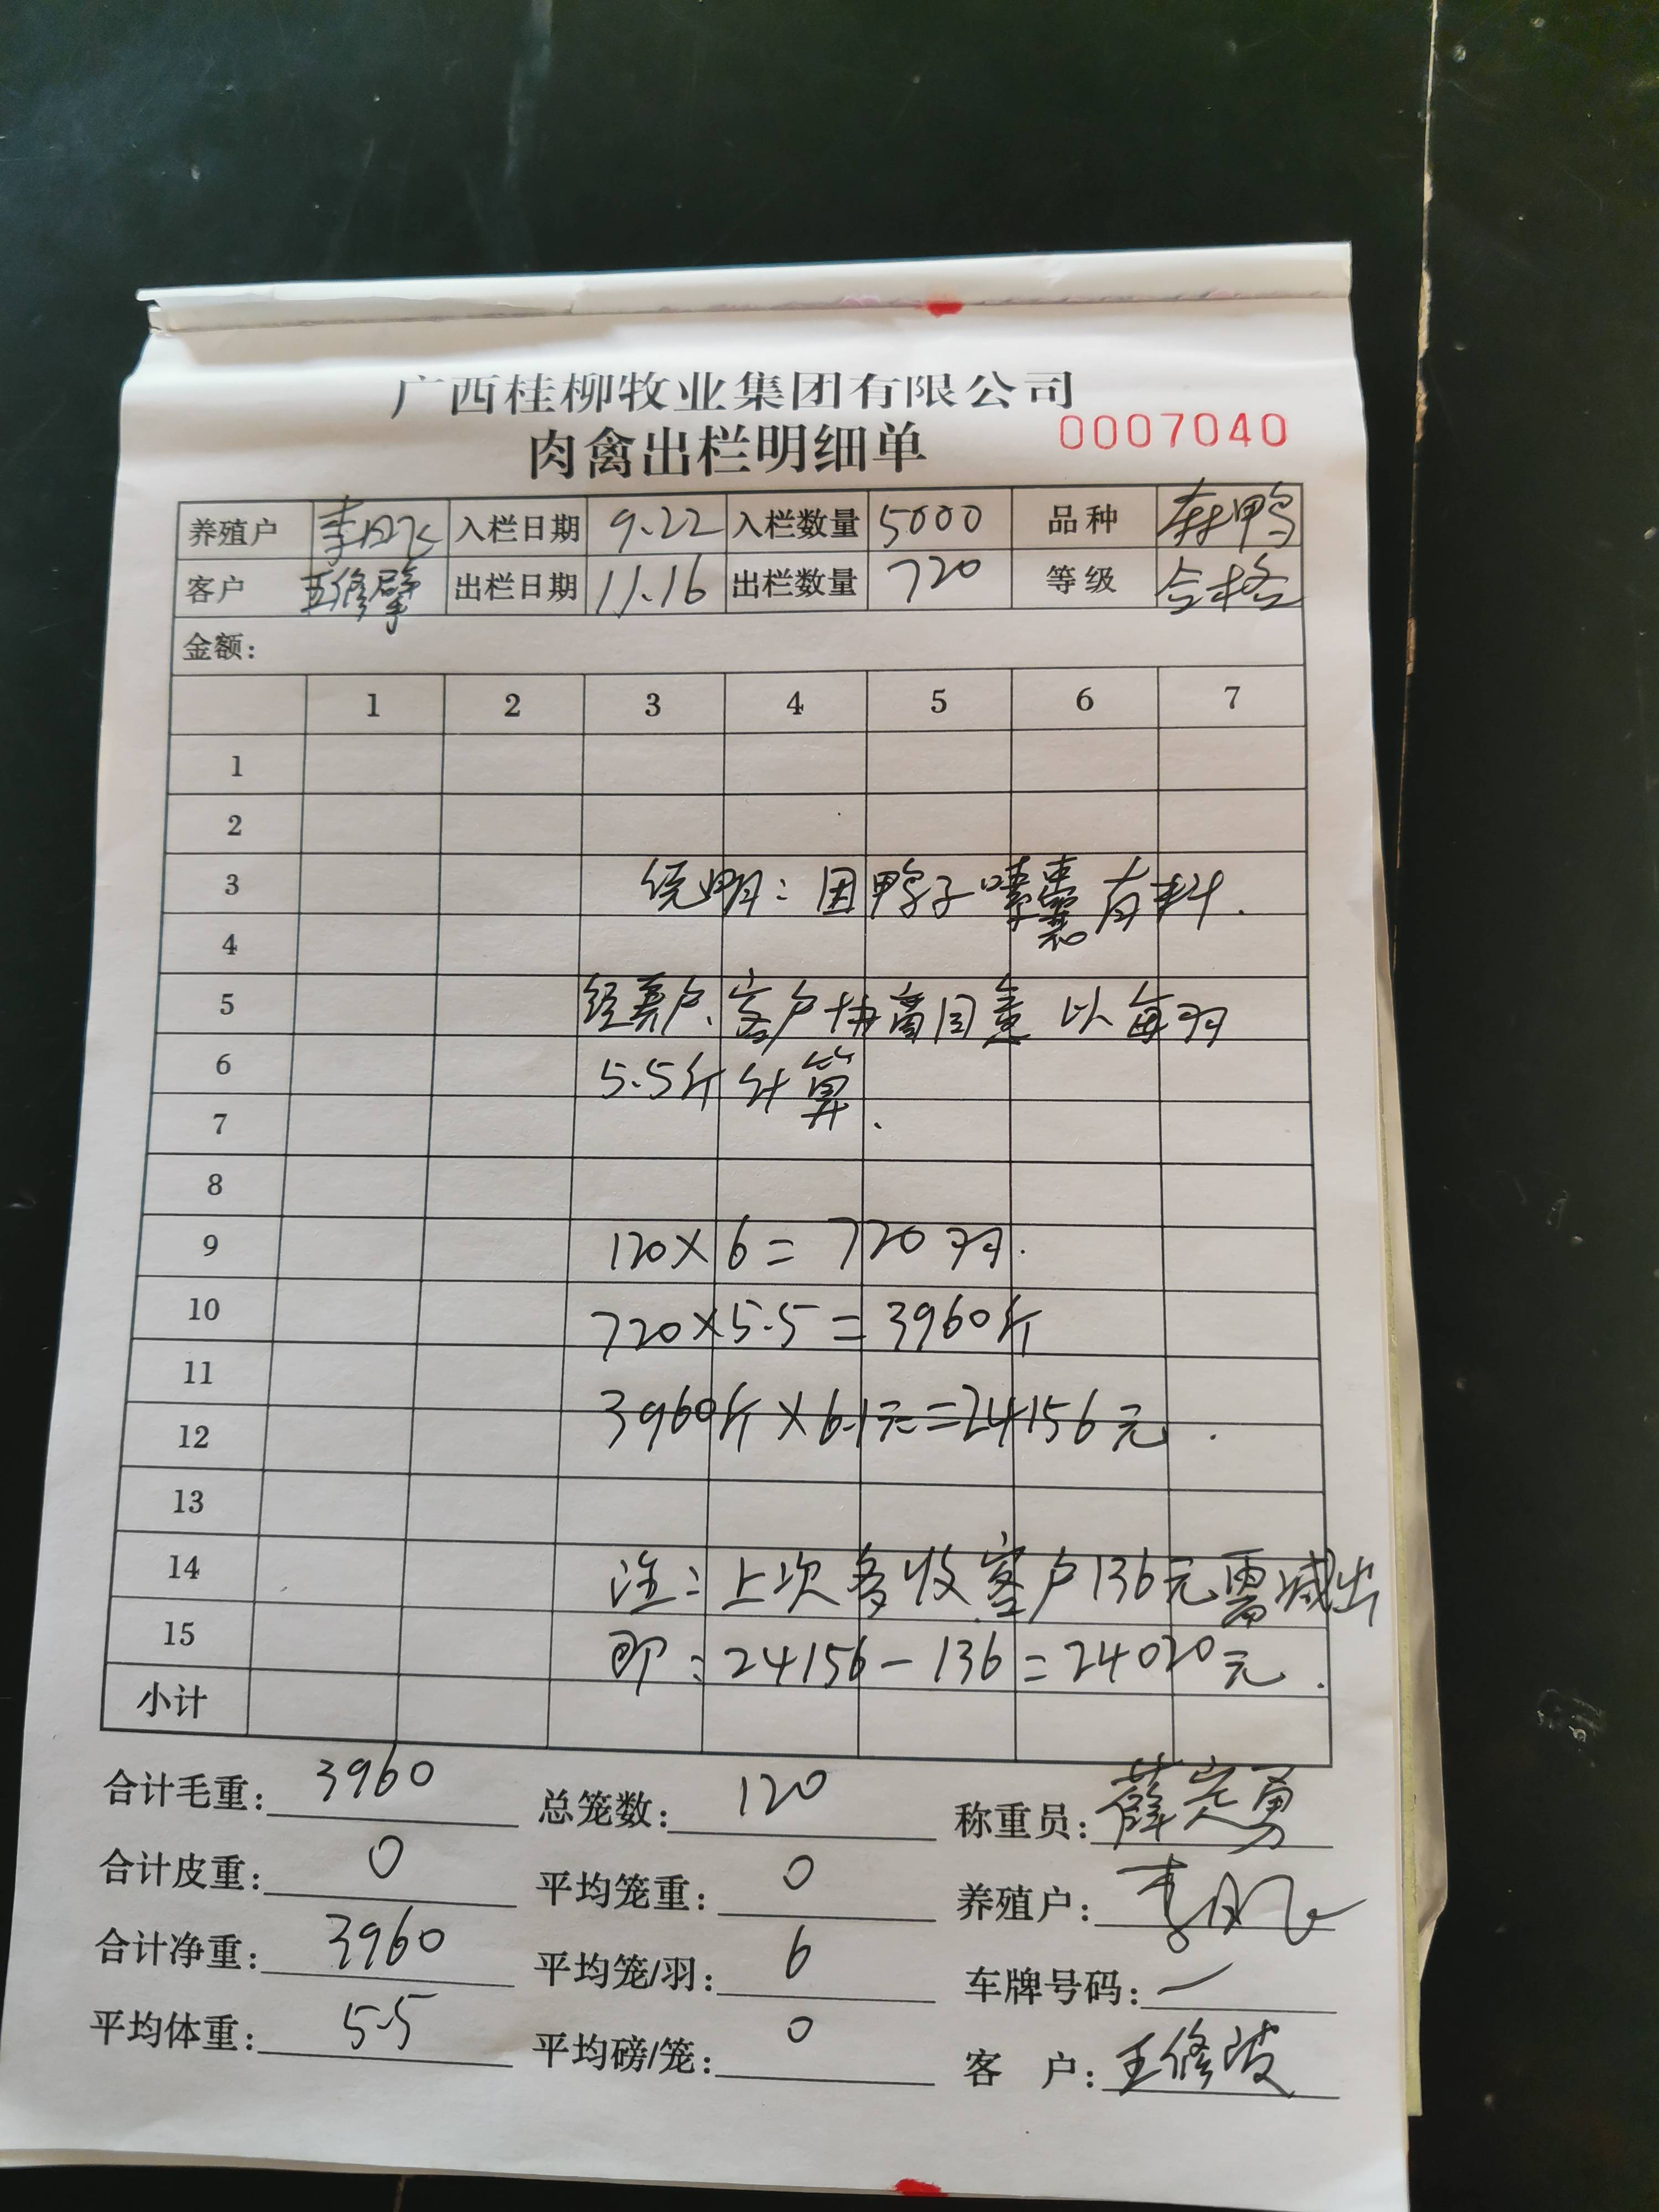 广西桂柳牧业集团有限公司
肉禽出栏明细单 0007040
养殖户 李凤飞 入栏日期 9.22 入栏数量 5000 品种 麻鸭
客户 王修 出栏日期 11.16 出栏数量 720 等级 合格
金额:
1 2 3 4 5 6 7
1
2
3 说明:因鸭子嗉囊有料.
4
5 经养户、客户协商同意 以每羽
6 5.5斤计算.
7
8
9 120×6=720羽.
10 720×5.5=3960斤
11
12 3960斤×6.1元=24156元.
13
14 注:上次多收客户136元需减出
15 即:24156-136=24020元.
小计
合计毛重: 3960 总笼数: 120 称重员: 薛定勇
合计皮重: 0 平均笼重: 0 养殖户: 李凤飞
合计净重: 3960 平均笼/羽: 6 车牌号码: 一
平均体重: 5.5 平均磅/笼: 0 客 户: 王修波